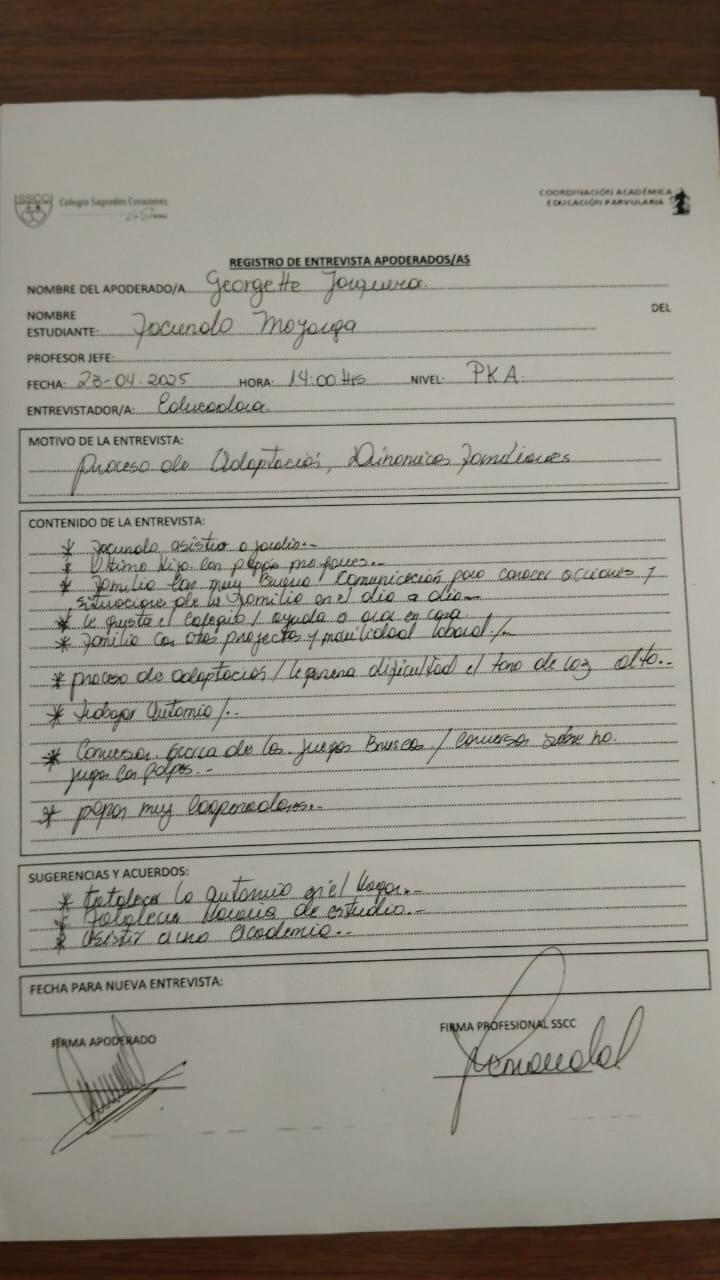 SSCC
Colegio Sagrados Corazones
COORDINACIÓN ACADÉMICA
EDUCACIÓN PARVULARIA
REGISTRO DE ENTREVISTA APODERADOS/AS
NOMBRE DEL APODERADO/A Georgette Jorquera
NOMBRE DEL
ESTUDIANTE: Facundo Moyanga
PROFESOR JEFE:
FECHA: 23-04-2025 HORA: 14:00 Hrs NIVEL: PKA.
ENTREVISTADOR/A: Educadora
MOTIVO DE LA ENTREVISTA:
Proceso de Adaptación, Dinamicas familiares
CONTENIDO DE LA ENTREVISTA:
* Facundo asistio a jardin.-
* Ultimo hijo con papás
* Familia con muy Buena Comunicación para conocer acciones y
situaciones de la familia en el dia a dia.-
* le gusta el Colegio / ayuda a orar en casa
* Familia con otros proyectos y movilidad laboral /-
* proceso de adaptación / le genera dificultad el tono de voz alto..
* trabajar Autonomia /..
* Conversar acerca de los juegos Bruscos / conversar sobre no
jugar con palos.-
* papas muy Cooperadores..
SUGERENCIAS Y ACUERDOS:
* Fortalecer la autonomia en el Hogar.-
* Fortalecer Horario de estudio.-
* Asistir a una academia..
FECHA PARA NUEVA ENTREVISTA:
FIRMA APODERADO
FIRMA PROFESIONAL SSCC